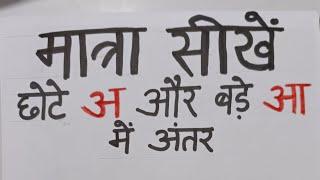 मात्रा सीखें
छोटे अ और बड़े आ
में अंतर